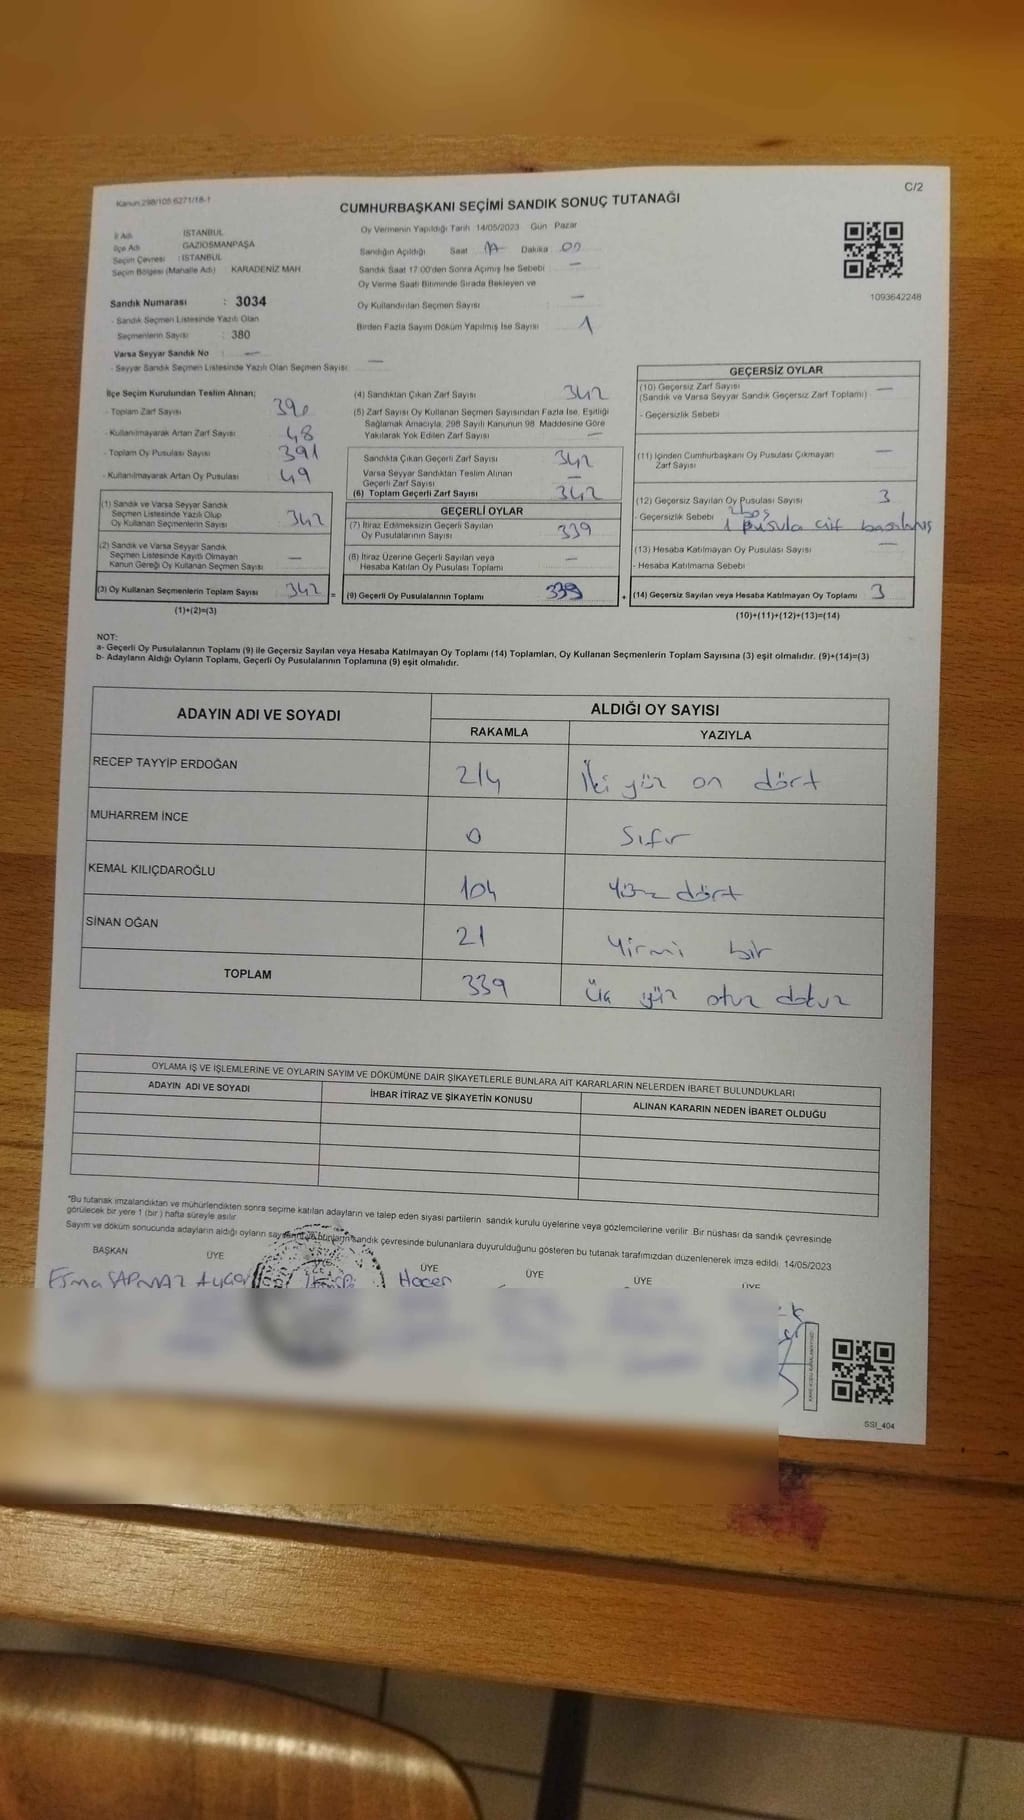 Kanun:298/105 6271/18-1
C/2
CUMHURBAŞKANI SEÇİMİ SANDIK SONUÇ TUTANAĞI
İl Adı İSTANBUL
İlçe Adı GAZİOSMANPAŞA
Seçim Çevresi : İSTANBUL
Seçim Bölgesi (Mahalle Adı) KARADENİZ MAH.
Sandık Numarası : 3034
- Sandık Seçmen Listesinde Yazılı Olan
Seçmenlerin Sayısı : 380
Varsa Seyyar Sandık No : —
- Seyyar Sandık Seçmen Listesinde Yazılı Olan Seçmen Sayısı: —
Oy Vermenin Yapıldığı Tarih 14/05/2023 Gün Pazar
Sandığın Açıldığı Saat 17 Dakika 00
Sandık Saat 17.00'den Sonra Açımış İse Sebebi : —
Oy Verme Saati Bitiminde Sırada Bekleyen ve
Oy Kullandırılan Seçmen Sayısı : —
Birden Fazla Sayım Döküm Yapılmış İse Sayısı : 1
1093642248
İlçe Seçim Kurulundan Teslim Alınan;
- Toplam Zarf Sayısı : 390
- Kullanılmayarak Artan Zarf Sayısı : 48
- Toplam Oy Pusulası Sayısı : 391
- Kullanılmayarak Artan Oy Pusulası : 49
(1) Sandık ve Varsa Seyyar Sandık
Seçmen Listesinde Yazılı Olup
Oy Kullanan Seçmenlerin Sayısı 342
(2) Sandık ve Varsa Seyyar Sandık
Seçmen Listesinde Kayıtlı Olmayan
Kanun Gereği Oy Kullanan Seçmen Sayısı —
(3) Oy Kullanan Seçmenlerin Toplam Sayısı 342 =
(1)+(2)=(3)
(4) Sandıktan Çıkan Zarf Sayısı 342
(5) Zarf Sayısı Oy Kullanan Seçmen Sayısından Fazla İse, Eşitliği
Sağlamak Amacıyla, 298 Sayılı Kanunun 98 Maddesine Göre
Yakılarak Yok Edilen Zarf Sayısı —
Sandıkta Çıkan Geçerli Zarf Sayısı 342
Varsa Seyyar Sandıktan Teslim Alınan
Geçerli Zarf Sayısı —
(6) Toplam Geçerli Zarf Sayısı 342
GEÇERLİ OYLAR
(7) İtiraz Edilmeksizin Geçerli Sayılan
Oy Pusulalarının Sayısı 339
(8) İtiraz Üzerine Geçerli Sayılan veya
Hesaba Katılan Oy Pusulası Toplamı —
(9) Geçerli Oy Pusulalarının Toplamı 339 +
GEÇERSİZ OYLAR
(10) Geçersiz Zarf Sayısı —
(Sandık ve Varsa Seyyar Sandık Geçersiz Zarf Toplamı)
- Geçersizlik Sebebi
(11) İçinden Cumhurbaşkanı Oy Pusulası Çıkmayan
Zarf Sayısı —
(12) Geçersiz Sayılan Oy Pusulası Sayısı 3
- Geçersizlik Sebebi 2 boş
1 pusula çift basılmış
(13) Hesaba Katılmayan Oy Pusulası Sayısı —
- Hesaba Katılmama Sebebi
(14) Geçersiz Sayılan veya Hesaba Katılmayan Oy Toplamı 3
(10)+(11)+(12)+(13)=(14)
NOT:
a- Geçerli Oy Pusulalarının Toplamı (9) ile Geçersiz Sayılan veya Hesaba Katılmayan Oy Toplamı (14) Toplamları, Oy Kullanan Seçmenlerin Toplam Sayısına (3) eşit olmalıdır. (9)+(14)=(3)
b- Adayların Aldığı Oyların Toplamı, Geçerli Oy Pusulalarının Toplamına (9) eşit olmalıdır.
ADAYIN ADI VE SOYADI ALDIĞI OY SAYISI
RAKAMLA YAZIYLA
RECEP TAYYİP ERDOĞAN 214 İki yüz on dört
MUHARREM İNCE 0 Sıfır
KEMAL KILIÇDAROĞLU 104 Yüz dört
SİNAN OĞAN 21 Yirmi bir
TOPLAM 339 Üç yüz otuz dokuz
OYLAMA İŞ VE İŞLEMLERİNE VE OYLARIN SAYIM VE DÖKÜMÜNE DAİR ŞİKAYETLERLE BUNLARA AİT KARARLARIN NELERDEN İBARET BULUNDUKLARI
ADAYIN ADI VE SOYADI İHBAR İTİRAZ VE ŞİKAYETİN KONUSU ALINAN KARARIN NEDEN İBARET OLDUĞU
*Bu tutanak imzalandıktan ve mühürlendikten sonra seçime katılan adayların ve talep eden siyasi partilerin sandık kurulu üyelerine veya gözlemcilerine verilir. Bir nüshası da sandık çevresinde
görülecek bir yere 1 (bir ) hafta süreyle asılır
Sayım ve döküm sonucunda adayların aldığı oyların sayısının ve bunların sandık çevresinde bulunanlara duyurulduğunu gösteren bu tutanak tarafımızdan düzenlenerek imza edildi. 14/05/2023
BAŞKAN ÜYE ÜYE ÜYE ÜYE ÜYE
Hacer
SSI_404